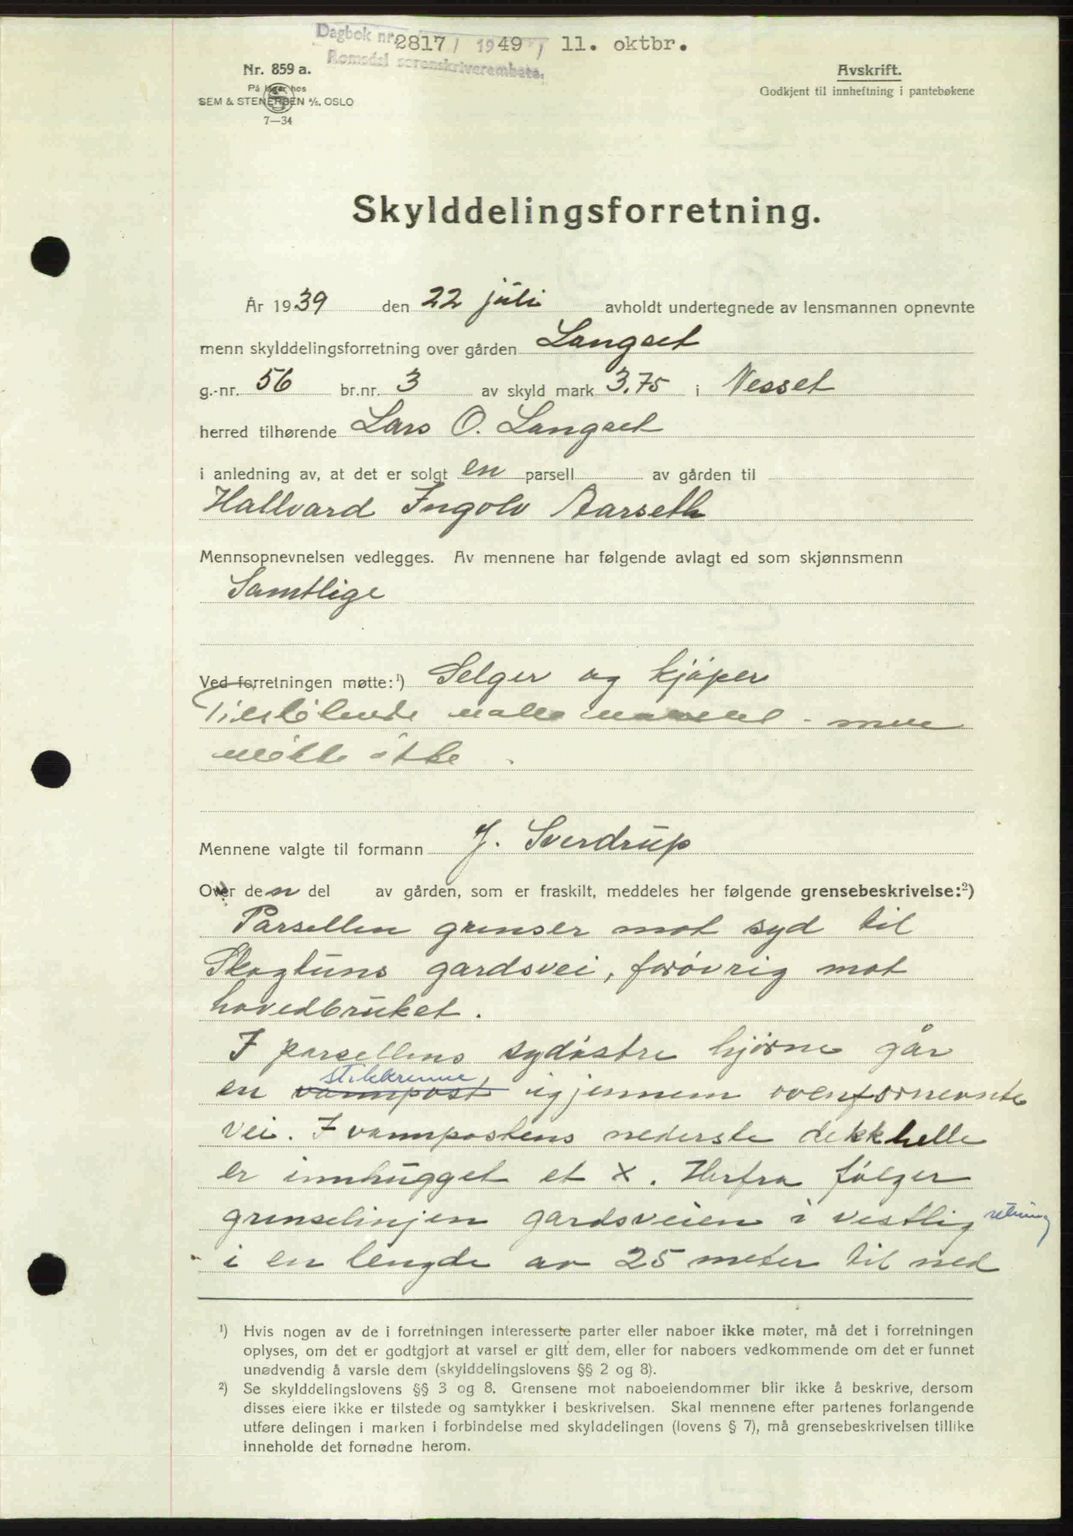 Dagbok nr. 2817 / 1949 / 11. oktbr.
Romsdal sorenskriverembete.
Nr. 859 a.
På lager hos
SEM & STENERSEN A/S, OSLO
7—34
Avskrift.
Godkjent til innheftning i pantebøkene
Skylddelingsforretning.
År 1939 den 22 juli avholdt undertegnede av lensmannen opnevnte
menn skylddelingsforretning over gården Langset
g.-nr. 56 br.nr. 3 av skyld mark 3.75 i Nesset
herred tilhørende Lars O. Langset
i anledning av, at det er solgt en parsell av gården til
Hallvard Ingolv Aarseth
Mennsopnevnelsen vedlegges. Av mennene har følgende avlagt ed som skjønnsmenn
Samtlige
Ved forretningen møtte:¹) Selger og kjøper
Tilstøtende naboer varslet - men
møtte ikke.
Mennene valgte til formann J. Sverdrup
Over den del av gården, som er fraskilt, meddeles her følgende grensebeskrivelse:²)
Parsellen grenser mot syd til
Skogtuns gardsvei, forøvrig mot
hovedbruket.
I parsellens sydøstre hjørne går
stikkrenne
en vannpost igjennem ovenfornevnte
vei. I vannpostens nederste dekkhelle
er innhugget et X. Herfra følger
grenselinjen gardsveien i vestlig retning
i en lengde av 25 meter til ned
¹) Hvis nogen av de i forretningen interesserte parter eller naboer ikke møter, må det i forretningen
oplyses, om det er godtgjort at varsel er gitt dem, eller for naboers vedkommende om det er funnet
unødvendig å varsle dem (skylddelingslovens §§ 2 og 8).
²) Se skylddelingslovens §§ 3 og 8. Grensene mot naboeiendommer blir ikke å beskrive, dersom
disses eiere ikke er tilstede og samtykker i beskrivelsen. Skal mennene efter partenes forlangende
utføre delingen i marken i forbindelse med skylddelingen (lovens § 7), må grensebeskrivelsen tillike
inneholde det fornødne herom.